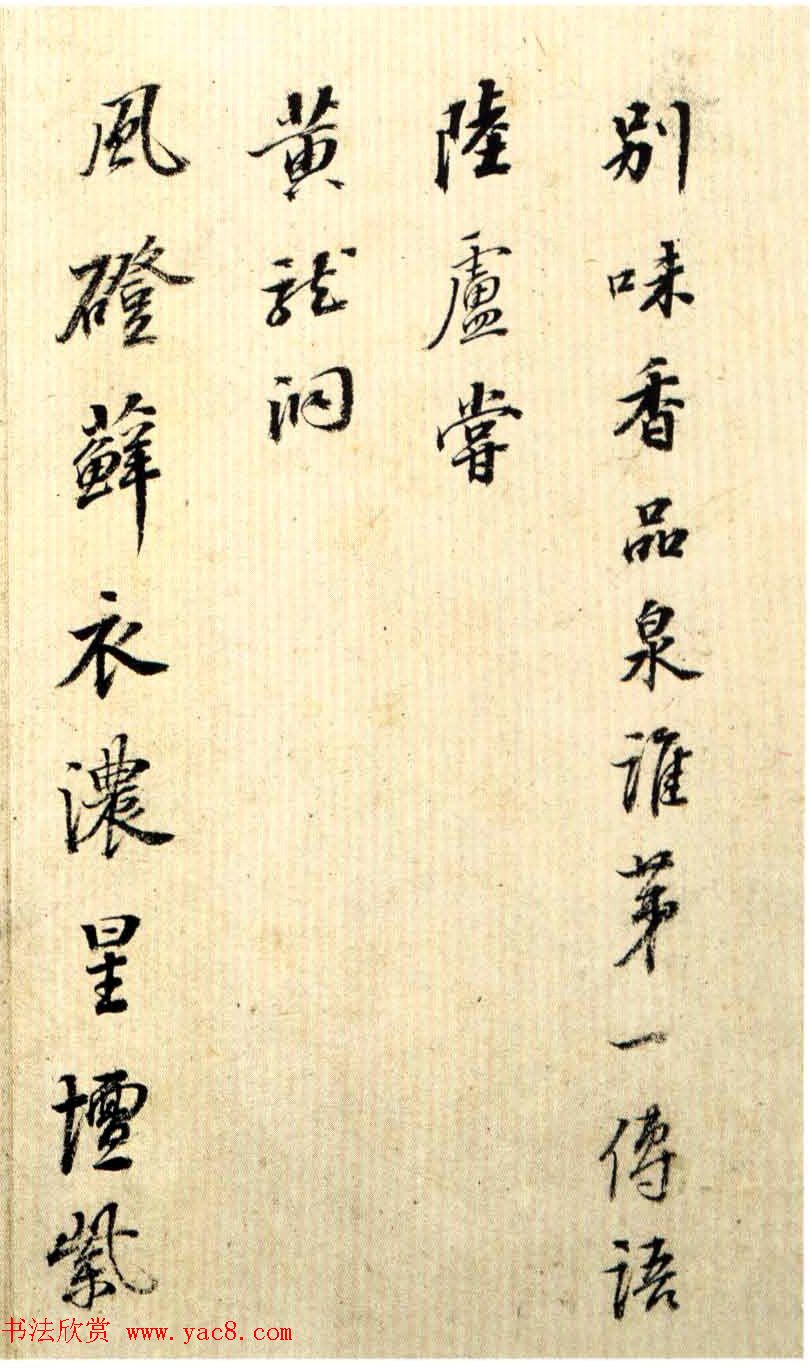 別味香品泉誰苐一傳語
陸盧嘗
黄龍洞
風磴蘚衣濃星壇紫
书法欣赏 www.yac8.com